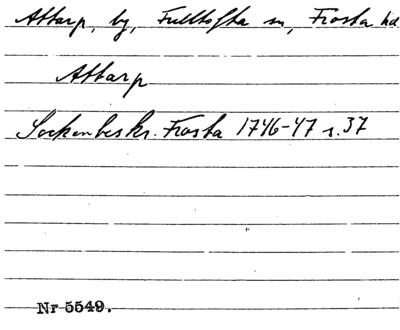 Attarp, by, Fulltofta sn, Frosta hd
Attarp
Sockenbeskr. Frosta 1746-47 s. 37
Nr 5549.